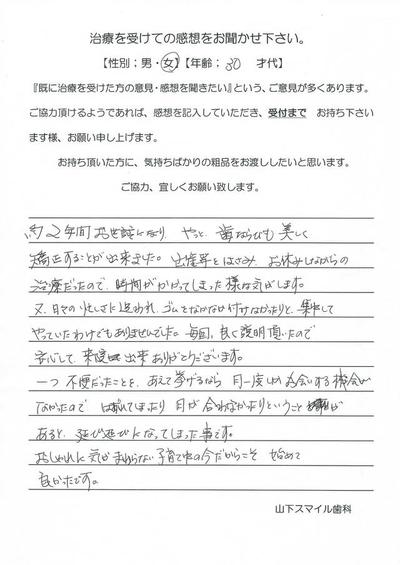 治療を受けての感想をお聞かせ下さい。
【性別：男・女】【年齢：30 才代】
『既に治療を受けた方の意見・感想を聞きたい』という、ご意見が多くあります。
ご協力頂けるようであれば、感想を記入していただき、受付まで お持ち下さい
ます様、お願い申し上げます。
お持ち頂いた方に、気持ちばかりの粗品をお渡ししたいと思います。
ご協力、宜しくお願い致します。
約2年間お世話になり、やっと、歯ならびも美しく
矯正することが出来ました。出産等とはさみ、お休みしながらの
治療だったので、時間がかかってしまった様な気がします。
又、日々の忙しさに追われ、ゴムをなかなか付けなかったりと、集中して
やっていたわけでもありませんでした。毎回、良く説明頂いたので
安心して、来院出来ありがとうございます。
一つ不便だったことを、あえて挙げるなら 月一度しかお会いする機会が
なかったので とれてしまったり 日が合わなかったりということが
あると、延び延びになってしまった事です。
おしゃれに気がまわらない子育て中の今だからこそ 始めて
良かったです。
山下スマイル歯科